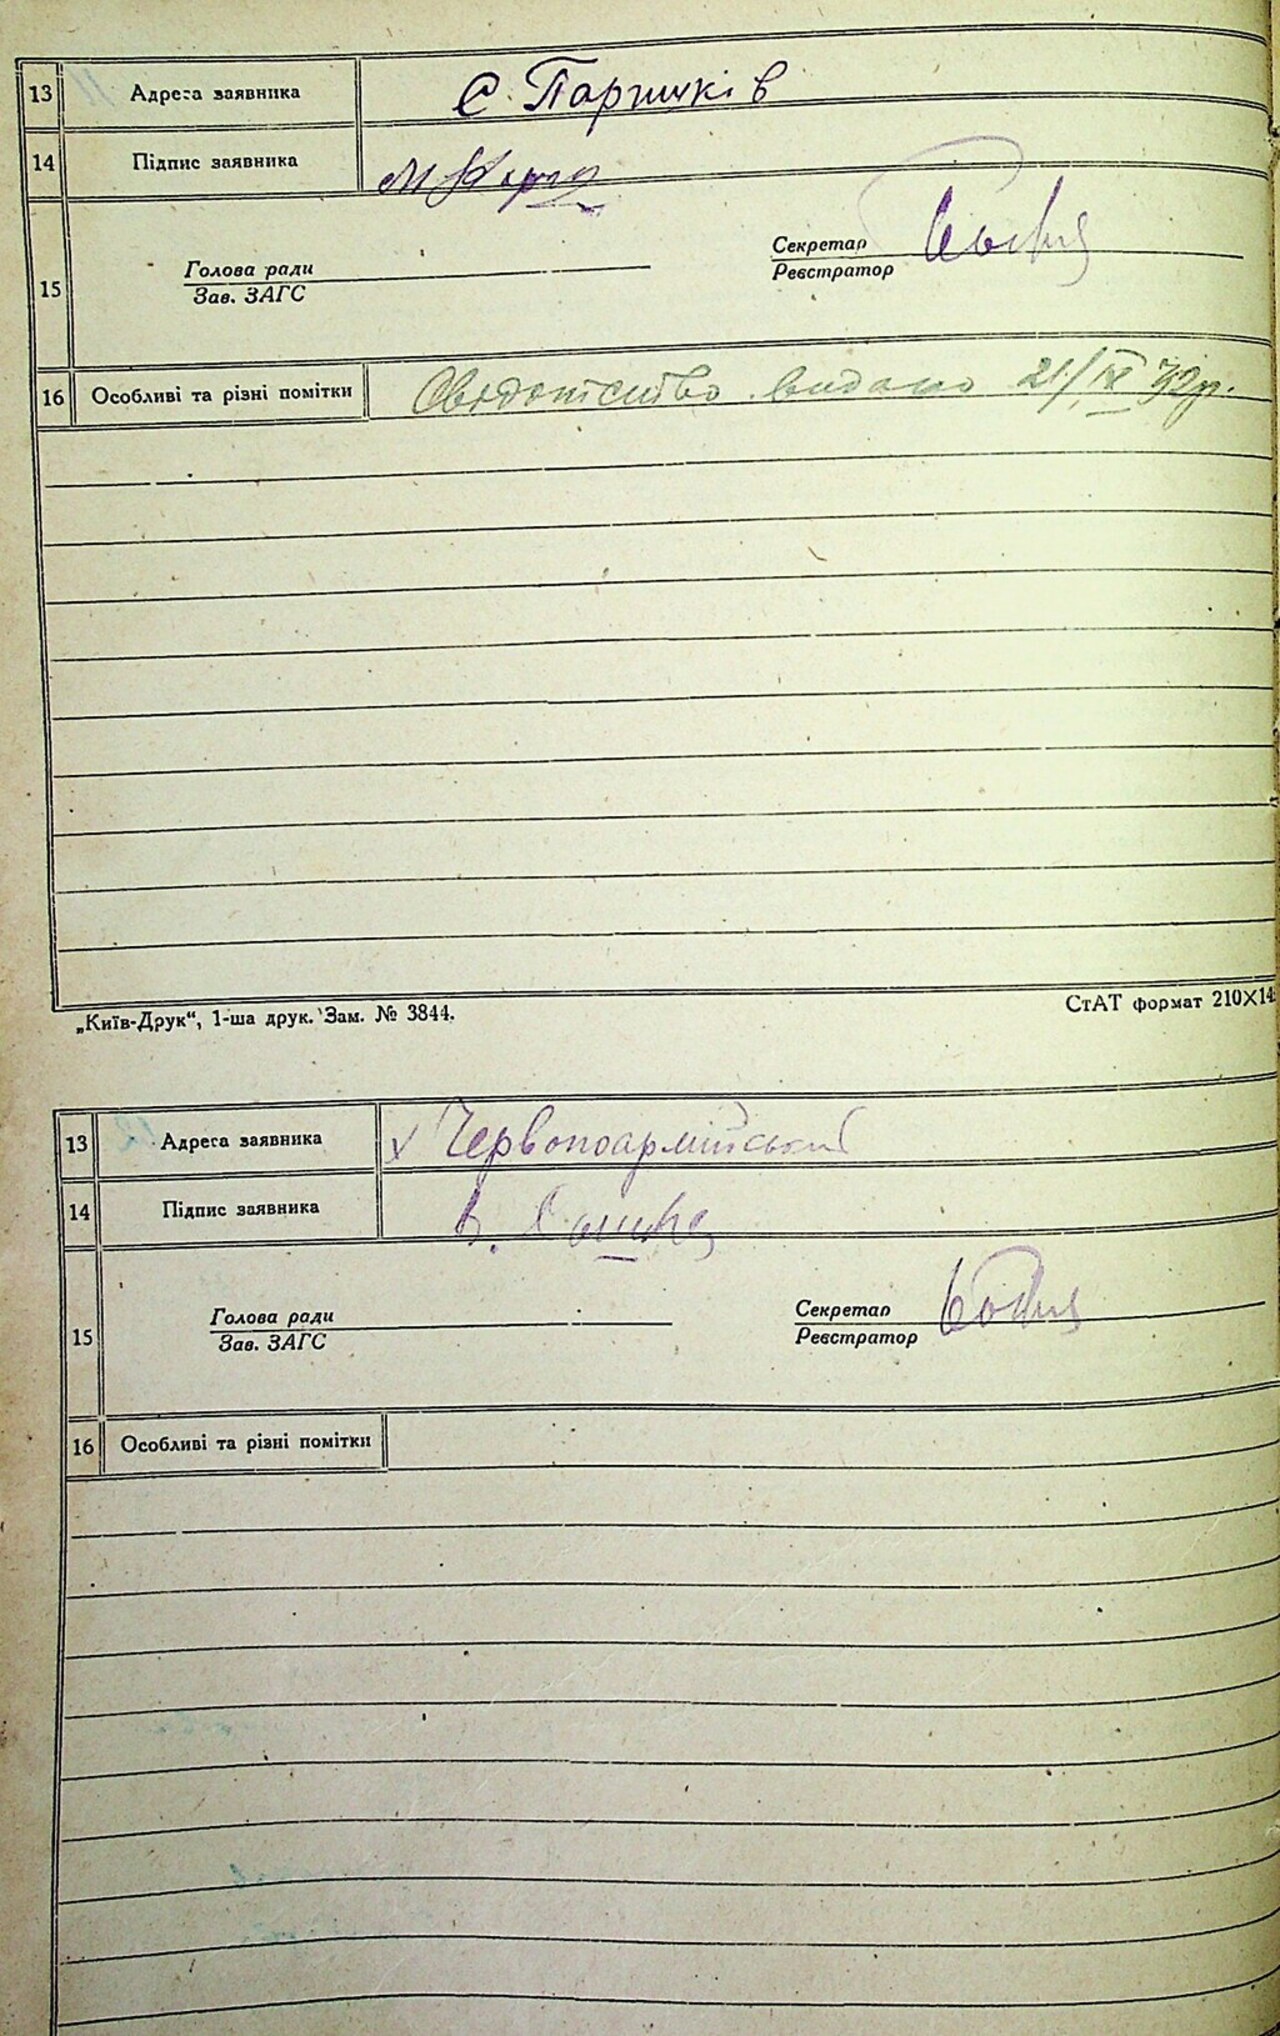 13 Адреса заявника С. Паришків
14 Підпис заявника М
15 Голова ради Секретар
Зав. ЗАГС Реєстратор
16 Особливі та різні помітки Свідотство видано 21/IX 32р.
„Київ-Друк“, 1-ша друк. Зам. № 3844. СтАТ формат 210×14
13 Адреса заявника х Червоноармійський
14 Підпис заявника В.
15 Голова ради Секретар
Зав. ЗАГС Реєстратор
16 Особливі та різні помітки